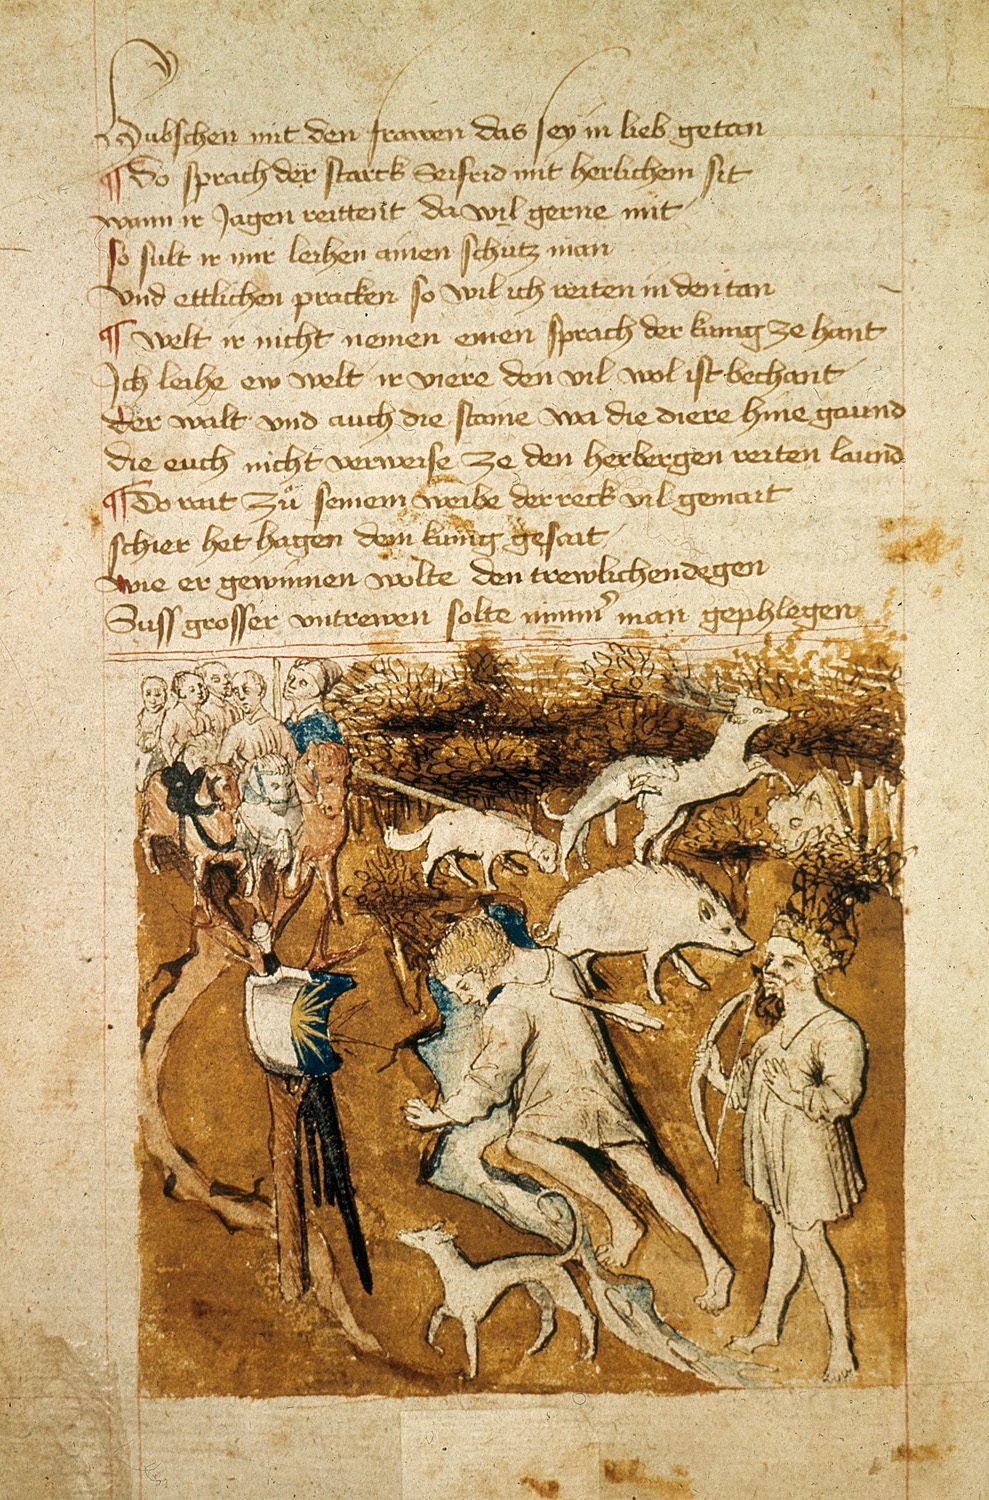 Hubschen mit den frawen das sey in lieb getan
¶ Do sprach der starck Seifrid mit herlichem sit
wann ir Jagen reittent da wil gerne mit
so sult ir mir leihen ainen schutz man
vnd ettlichen pracken so wil ich reiten in den tan
¶ welt ir nicht nemen einen sprach der kunig ze hant
Ich leihe ew welt ir viere den vil wol ist bechant
der walt vnd auch die staine wa die diere hine gaund
die euch nicht verweise ze den herbergen reiten laund
¶ Do rait zů seinem weibe der reck vil gemait
schier het hagen dem kunig gesait
wie er gewinnen wolte den trewlichen degen
Suss grosser vntrewen solte nimm̉ man gephlegen